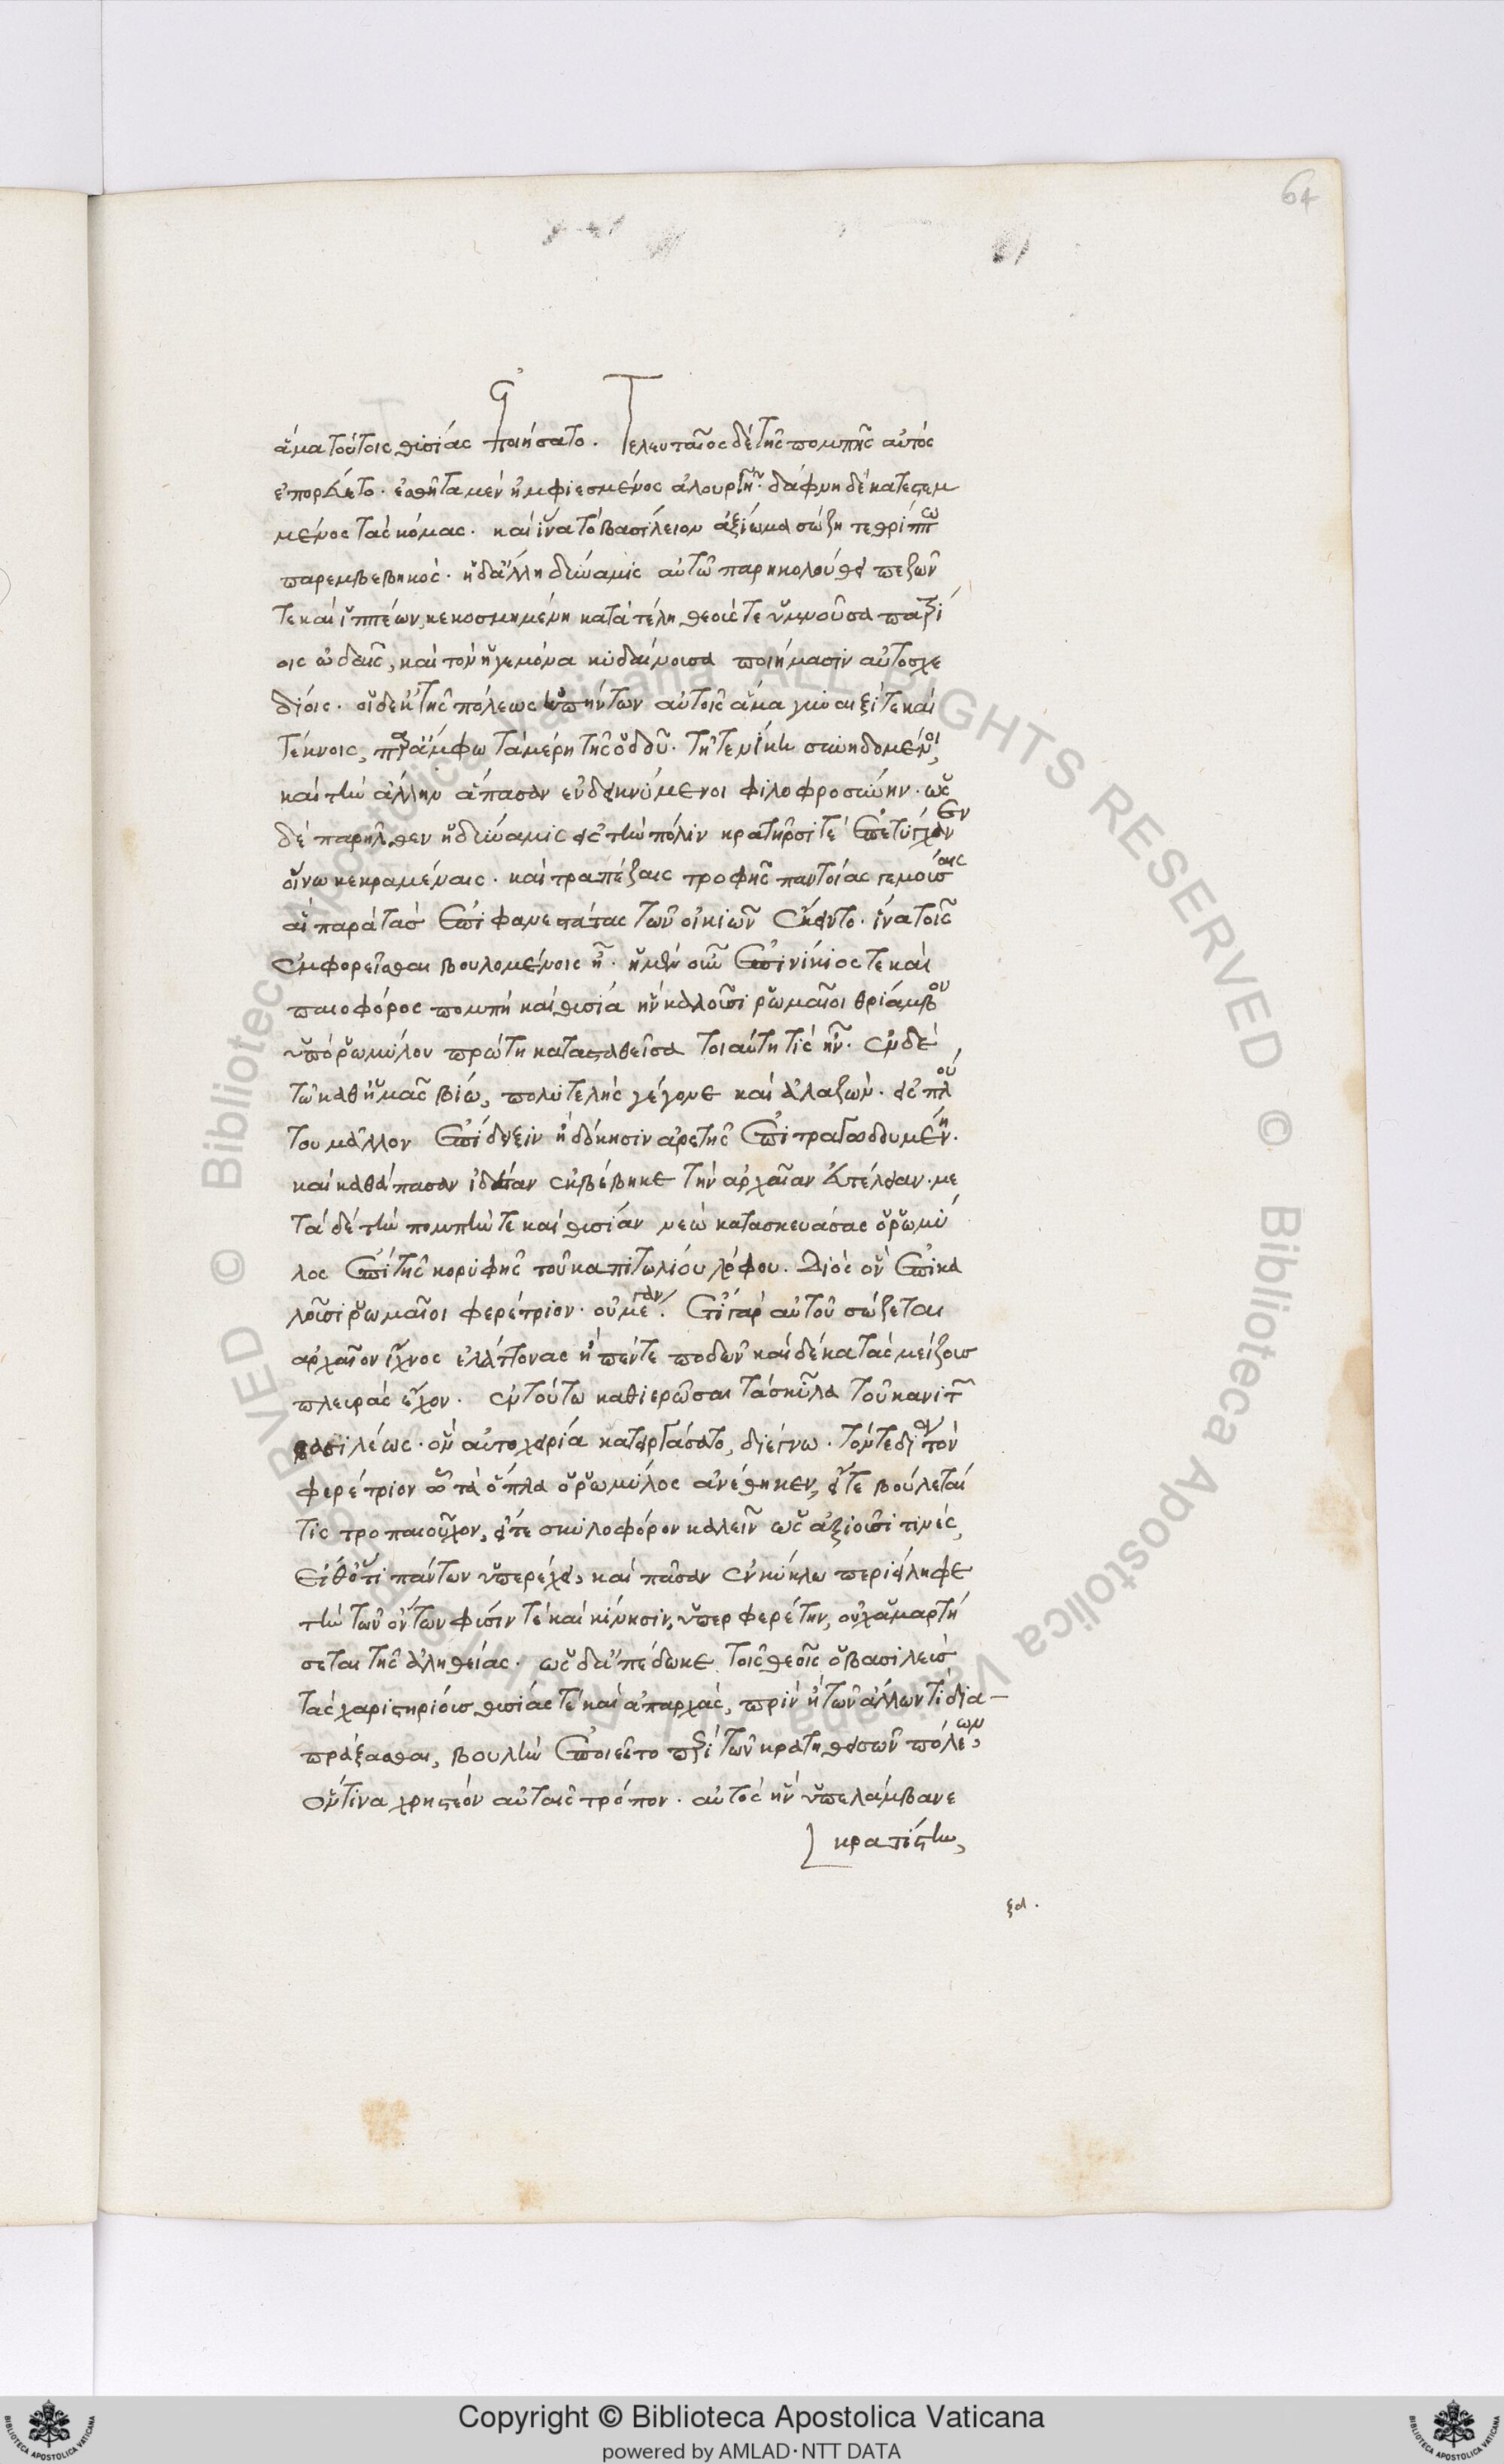 64
ἅμα τούτοις θυσίας ἐποιήσατο. Τελευταῖος δὲ τῆς πομπῆς αὐτὸς
ἐπορεύετο. ἐσθῆτα μὲν ἠμφιεσμένος ἁλουργῆν. δάφνη δὲ κατεστεμ
μένος τὰς κόμας. καὶ ἵνα τὸ βασίλειον ἀξίωμα σώζη τεθρίππω
παρεμβεβηκός. ἡ δ' ἄλλη δύναμις αὐτῶ παρηκολούθει πεζῶν
τε καὶ ἱππέων, κεκοσμημένη κατὰ τέλη θεούς τε ὑμνοῦσα πατρί
οις ὠδαῖς, καὶ τὸν ἡγεμόνα κυδαίνουσα ποιήμασιν αὐτοσχε
δίοις. οἱ δ' ἐκ τῆς πόλεως ὑπήντων αὐτοῖς ἅμα γυναιξί τε καὶ
τέκνοις, παρ' ἄμφω τὰ μέρη τῆς ὁδοῦ. τῆ τε νίκη συνηδομένοι,
καὶ τὴν ἄλλην ἅπασαν ἐνδεικνύμενοι φιλοφροσύνην. ὡς
δὲ παρῆλθεν ἡ δύναμις εἰς τὴν πόλιν κρατῆρσί τε ἐπετύγχανεν
οἴνω κεκραμένοις. καὶ τραπέζαις τροφῆς παντοίας γεμούσαις
αἳ παρὰ τὰς ἐπιφανεστάτας τῶν οἰκιῶν ἔκειντο. ἵνα τοῖς
ἐμφορεῖσθαι βουλομένοις ἦ. ἡ μὲν οὖν ἐπινίκιός τε καὶ
παιοφόρος πομπὴ καὶ θυσία ἣν καλοῦσι ῥωμαῖοι θρίαμβον
ὑπὸ ῥωμύλου πρώτη κατασταθεῖσα τοιαύτη τίς ἦν. ἐν δὲ
τῶ καθ' ἡμᾶς βίω, πολυτελὴς γέγονε καὶ ἀλαζών. εἰς πλού
του μᾶλλον ἐπίδειξιν ἢ δόκησιν ἀρετῆς ἐπιτραγωδουμένη.
καὶ καθ' ἅπασαν ἰδέαν ἐκβέβηκε τὴν ἀρχαίαν εὐτέλειαν. με
τὰ δὲ τὴν πομπήν τε καὶ θυσίαν νεὼν κατασκευάσας ὁ ῥωμύ
λος ἐπὶ τῆς κορυφῆς τοῦ καπιτωλίου λόφου. Διὸς ὃν ἐπικα
λοῦσι ῥωμαῖοι φερέτριον. οὐ μέγαν. ἔτι γὰρ αὐτοῦ σώζεται
ἀρχαῖον ἴχνος ἐλάττονας ἢ πέντε ποδῶν καὶ δέκα τὰς μείζους
πλευρὰς ἔχον. ἐν τούτω καθιερῶσαι τὰ σκῦλα τοῦ κανιτῶν
βασιλέως. ὃν αὐτοχειρία κατειργάσατο, διέγνω. τόν τε δία τὸν
φερέτριον ὧ τὰ ὅπλα ὁ ῥωμύλος ἀνέθηκεν, εἴτε βούλεταί
τις τροπαιοῦχον, εἴτε σκυλοφόρον καλεῖν ὡς ἀξιοῦσί τινές,
εἴθ' ὅτι πάντων ὑπερέχει, καὶ πᾶσαν ἐν κύκλω περιείληφε
τὴν τῶν ὄντων φύσιν τε καὶ κίνησιν, ὑπερφερέτην, οὐχ ἁμαρτή
σεται τῆς ἀληθείας. ὡς δ' ἀπέδωκε τοῖς θεοῖς ὁ βασιλεὺς
τὰς χαριστηρίους θυσίας τε καὶ ἀπαρχάς, πρὶν ἢ τῶν ἄλλων τι δια-
πράξασθαι, βουλὴν ἐποιεῖτο περὶ τῶν κρατηθεισῶν πόλεων,
ὅντινα χρηστέον αὐταῖς τρόπον. αὐτὸς ἣν ὑπελάμβανε
κρατίστην,
ξα.
Copyright © Biblioteca Apostolica Vaticana
powered by AMLAD·NTT DATA